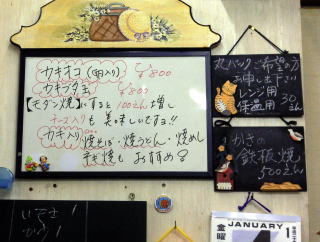 カキオコ(卵入り) ¥800
カキブタ玉 ¥800
【モダン焼】にすると100えん増し
チーズ入りも美味しいですヨ!!
カキ入り 焼そば・焼うどん・焼めし
も おすすめ
丸パック ご希望の方
お申し出下さい
レンジ用
保温用 30えん
かきの
鉄板焼
500えん
JANUARY
金曜
1